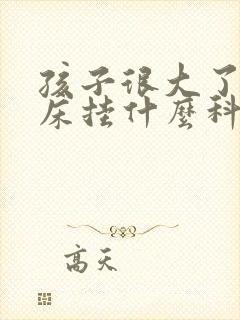 孩子很大了
床挂什麼科
高天